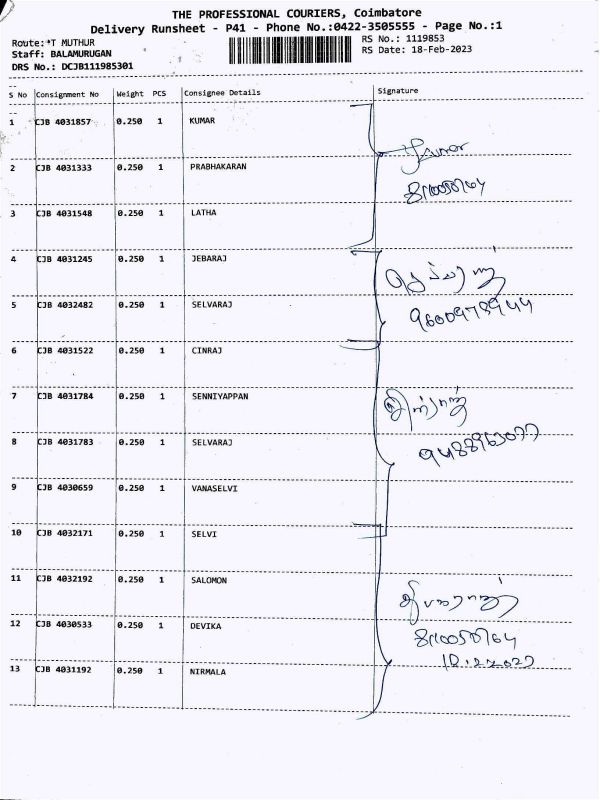 THE PROFESSIONAL COURIERS, Coimbatore
Delivery Runsheet - P41 - Phone No.:0422-3505555 - Page No.:1
Route:*T MUTHUR
RS No.: 1119853
Staff: BALAMURUGAN
RS Date: 18-Feb-2023
DRS No.: DCJB111985301
S No Consignment No Weight PCS Consignee Details Signature
1 CJB 4031857 0.250 1 KUMAR
2 CJB 4031333 0.250 1 PRABHAKARAN
3 CJB 4031548 0.250 1 LATHA
4 CJB 4031245 0.250 1 JEBARAJ
5 CJB 4032482 0.250 1 SELVARAJ
9600978944
6 CJB 4031522 0.250 1 CINRAJ
7 CJB 4031784 0.250 1 SENNIYAPPAN
8 CJB 4031783 0.250 1 SELVARAJ
9488963077
9 CJB 4030659 0.250 1 VANASELVI
10 CJB 4032171 0.250 1 SELVI
11 CJB 4032192 0.250 1 SALOMON
12 CJB 4030533 0.250 1 DEVIKA
13 CJB 4031192 0.250 1 NIRMALA